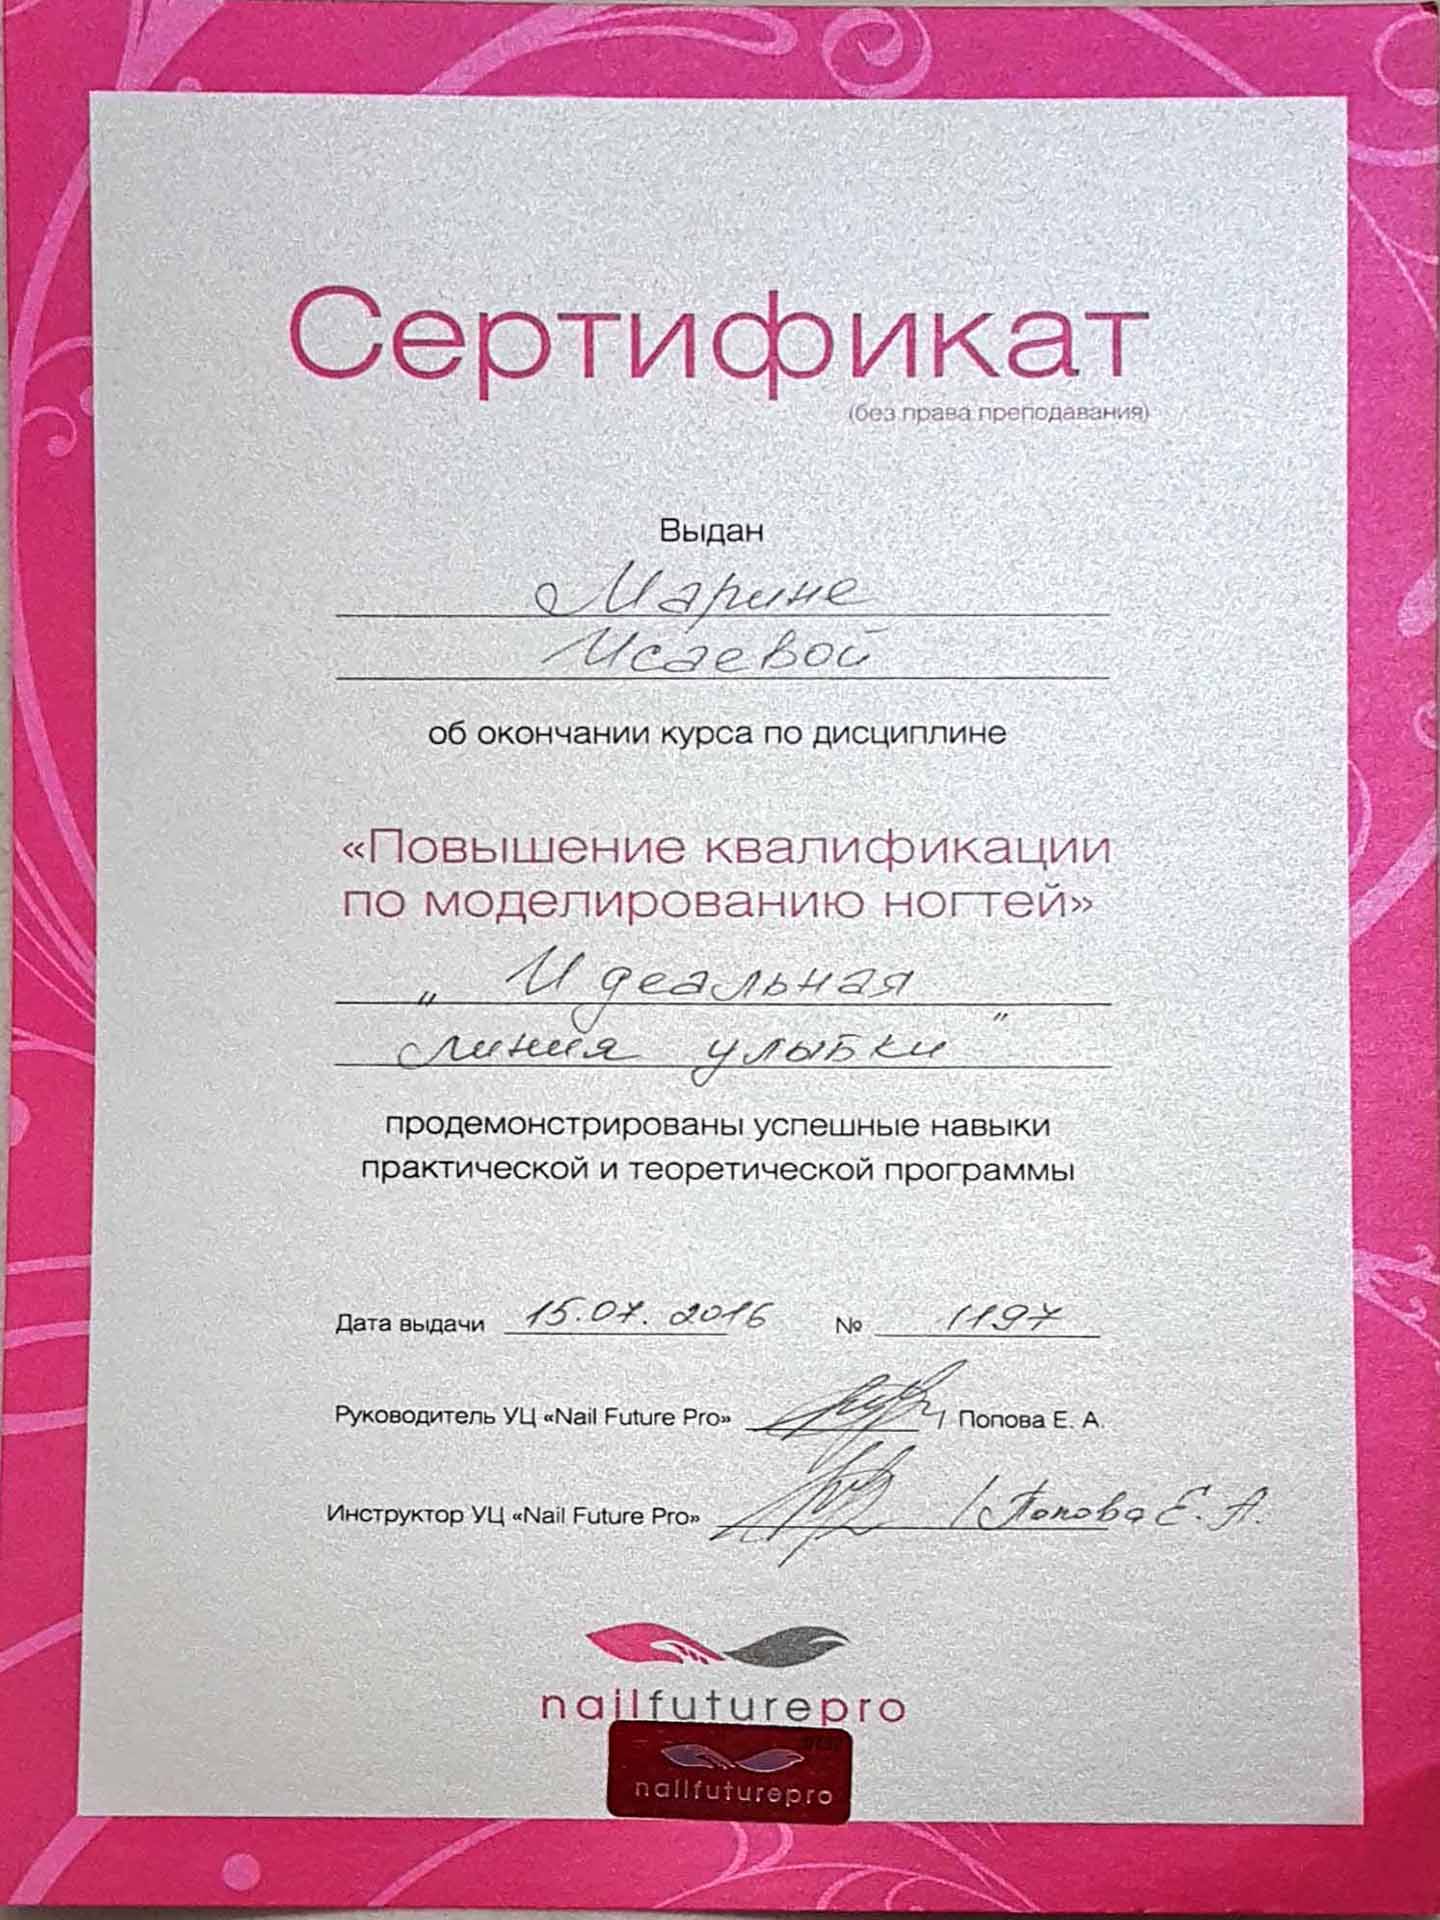 Сертификат
(без права преподавания)
Выдан
Марине
Исаевой
об окончании курса по дисциплине
«Повышение квалификации
по моделированию ногтей»
„ Идеальная
линия улыбки "
продемонстрированы успешные навыки
практической и теоретической программы
Дата выдачи 15.07.2016 № 1197
Руководитель УЦ «Nail Future Pro» / Попова Е. А.
Инструктор УЦ «Nail Future Pro» / Попова Е. А.
nailfuturepro
nailfuturepro